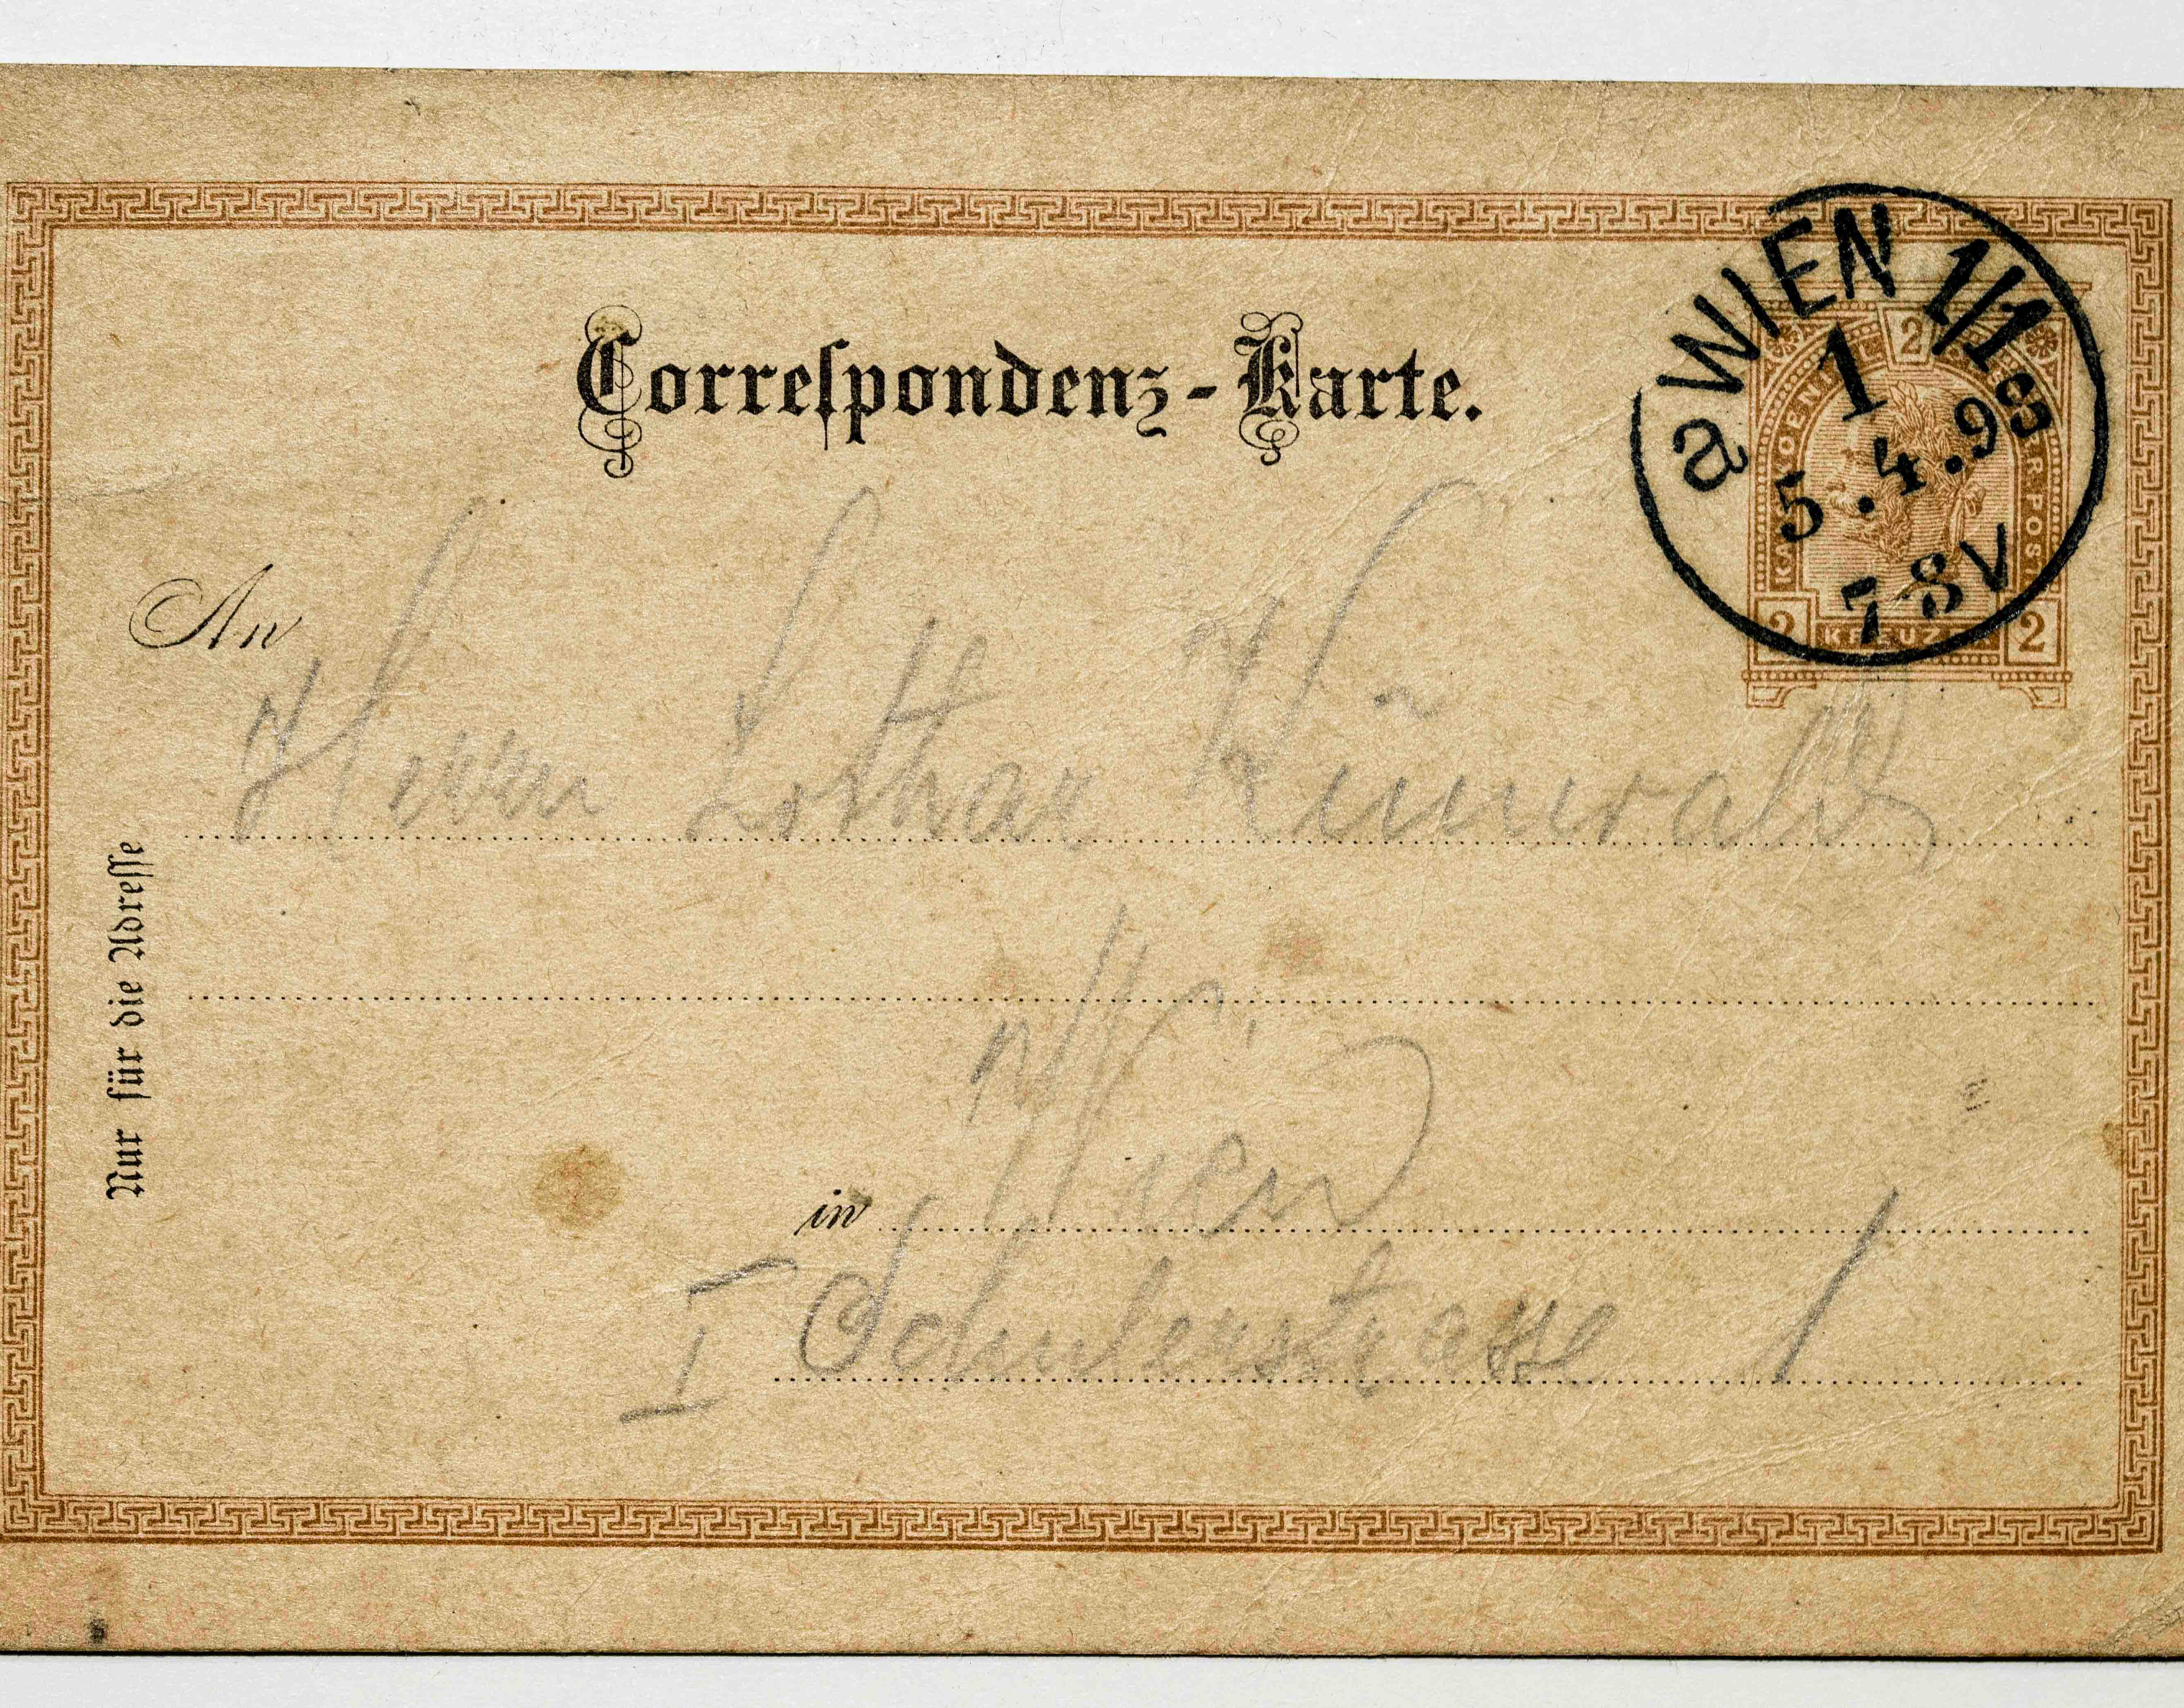 Correſpondenz-Karte.
a WIEN 1/1
1
5.4.98
7-8V
2
2 KREUZER 2
An
Herrn Lothar
Nur für die Adreſſe
in Wien
I Schulerstrasse 1